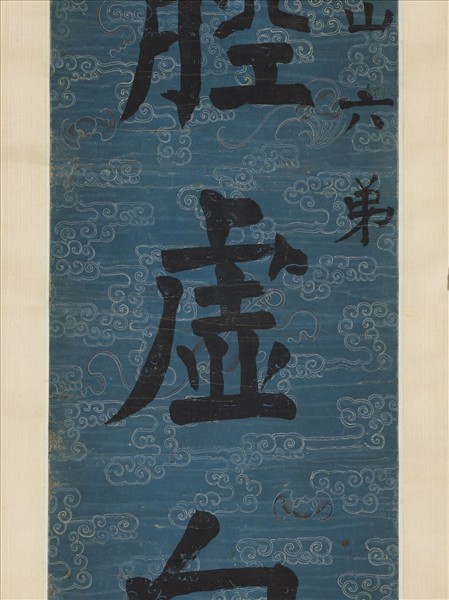 山六弟
腔虛